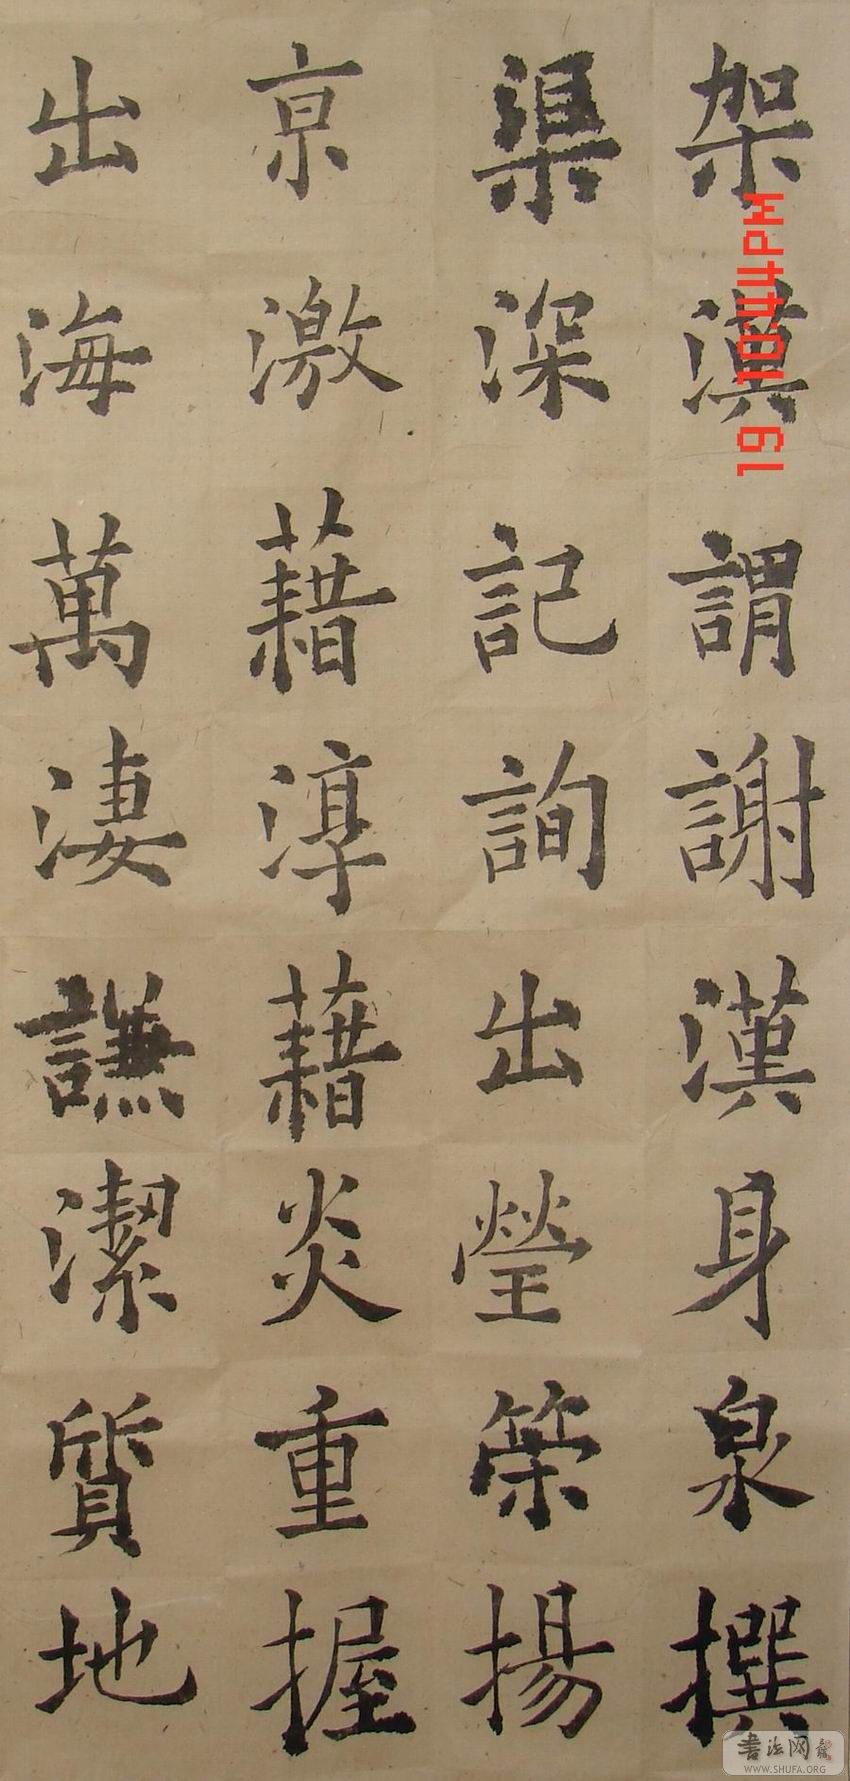 架漢謂謝漢身泉撰
渠深記詢出瑩策揚
京激藉淳藉炎重握
出海萬淒謙潔質地
19 10:44PM
書法网
WWW.SHUFA.ORG